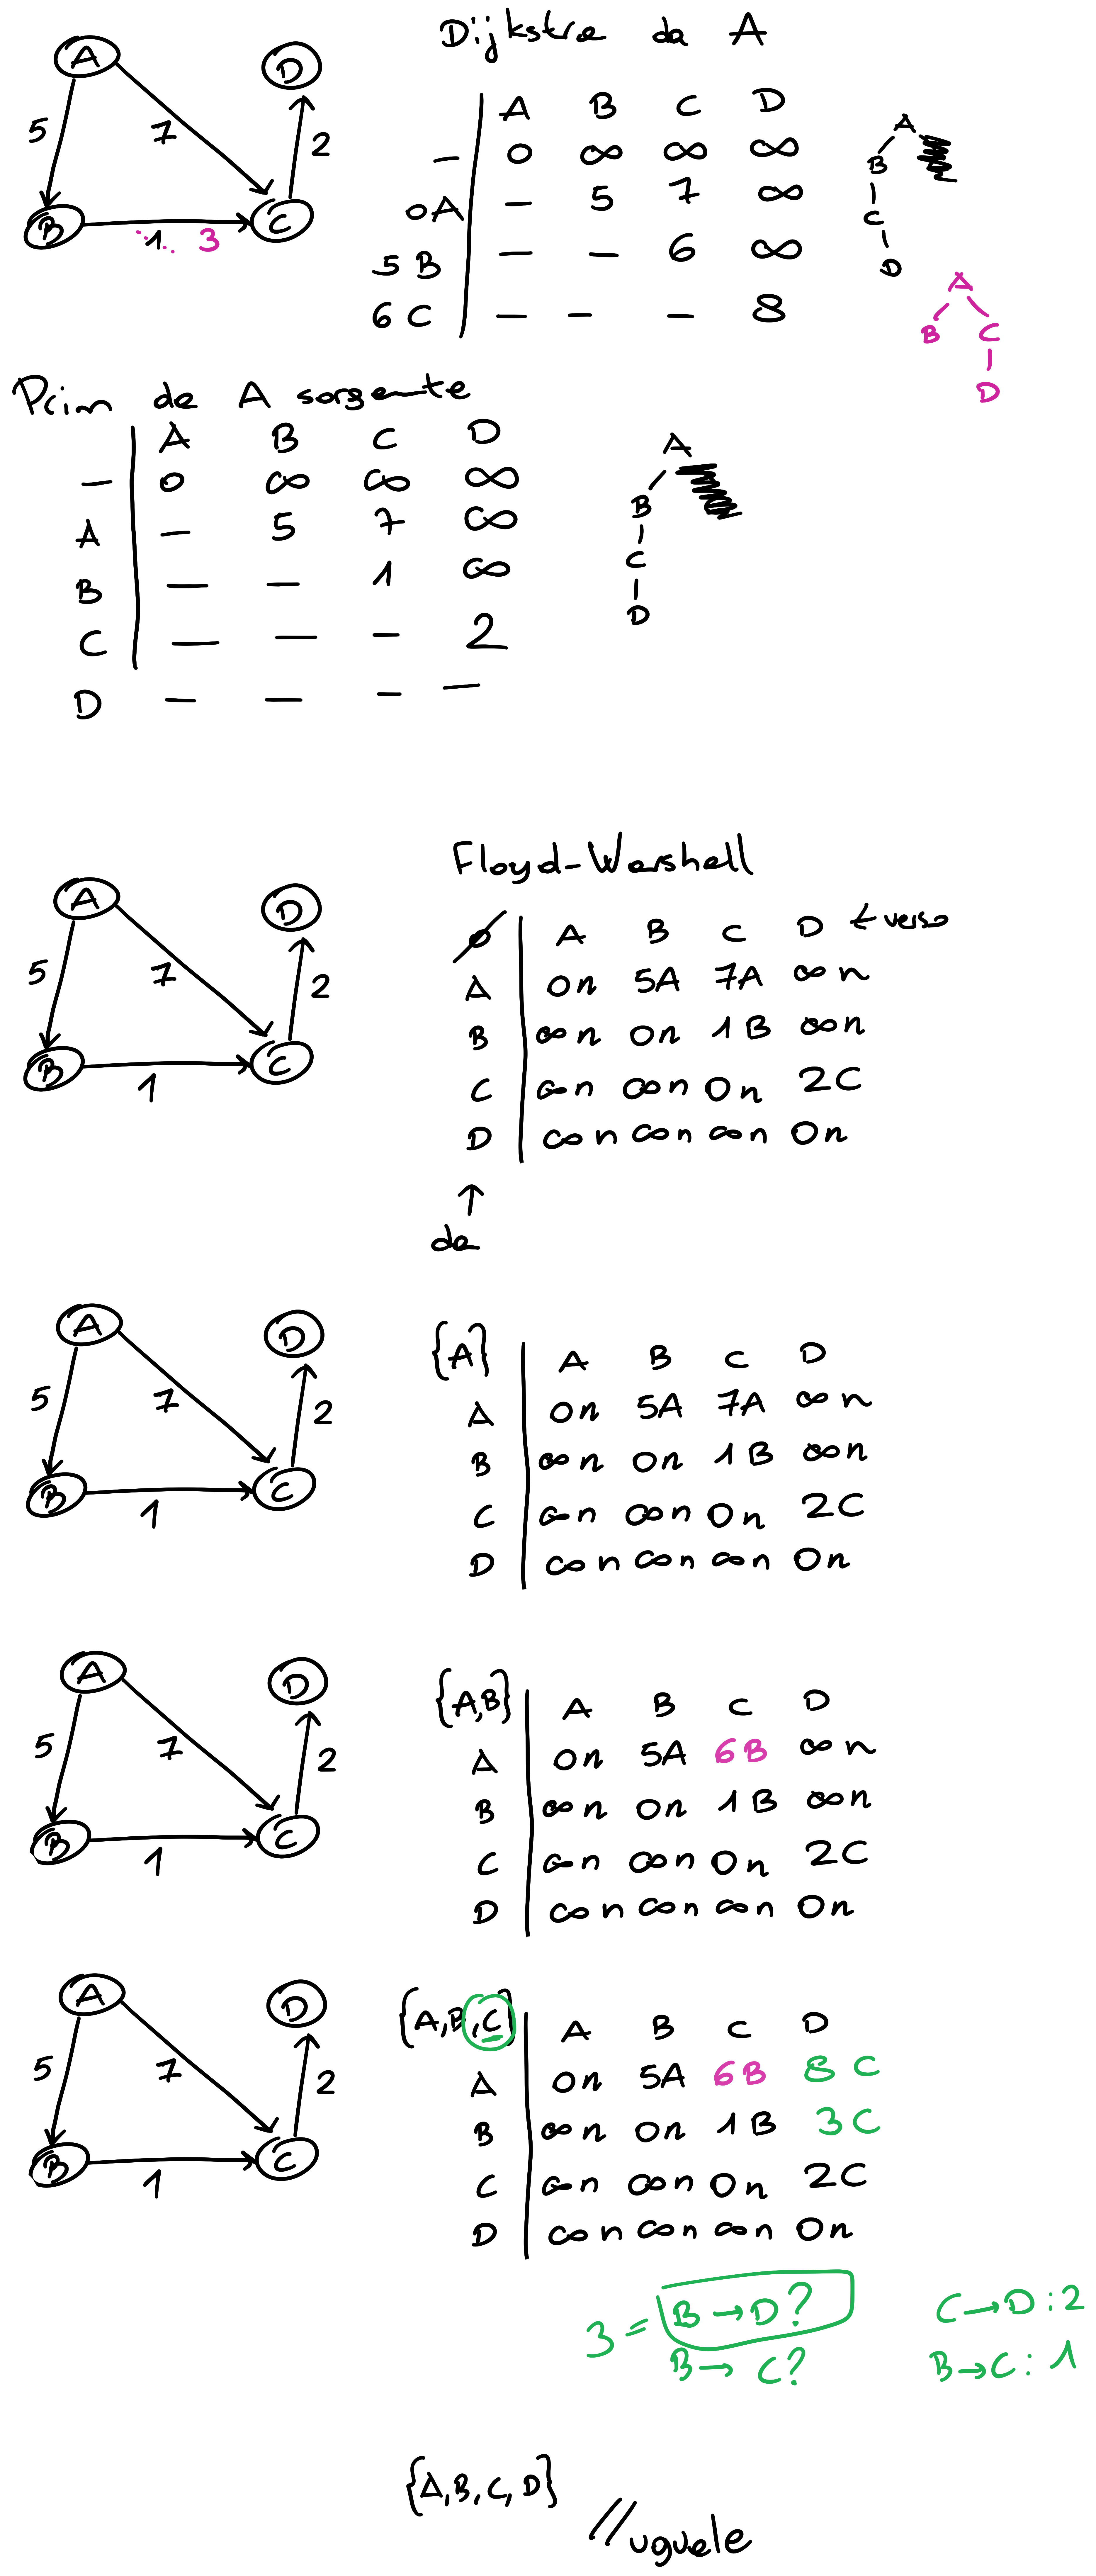 Dijkstra da A
A D
5 7 2
B 1 3 C
A B C D
— 0 ∞ ∞ ∞
0A — 5 7 ∞
5 B — — 6 ∞
6 C — — — 8
A
B
C
D
A
B C
D
Prim da A sorgente
A B C D
— 0 ∞ ∞ ∞
A — 5 7 ∞
B — — 1 ∞
C — — — 2
D — — — —
A
B
C
D
Floyd-Warshall
A D
5 7 2
B 1 C
∅ A B C D ← verso
A 0n 5A 7A ∞n
B ∞n 0n 1B ∞n
C ∞n ∞n 0n 2C
D ∞n ∞n ∞n 0n
↑
da
A D
5 7 2
B 1 C
{A} A B C D
A 0n 5A 7A ∞n
B ∞n 0n 1B ∞n
C ∞n ∞n 0n 2C
D ∞n ∞n ∞n 0n
A D
5 7 2
B 1 C
{A,B} A B C D
A 0n 5A 6B ∞n
B ∞n 0n 1B ∞n
C ∞n ∞n 0n 2C
D ∞n ∞n ∞n 0n
A D
5 7 2
B 1 C
{A,B,C} A B C D
A 0n 5A 6B 8C
B ∞n 0n 1B 3C
C ∞n ∞n 0n 2C
D ∞n ∞n ∞n 0n
3 = B→D? C→D:2
B→C? B→C:1
{A,B,C,D} // uguale